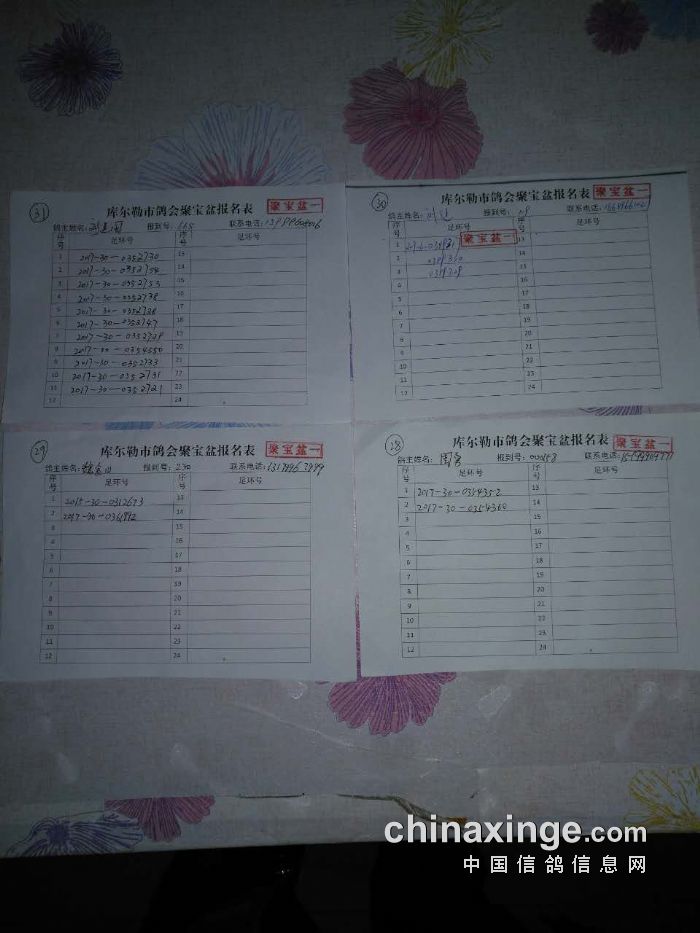 31
库尔勒市鸽会聚宝盆报名表 聚宝盆一
鸽主姓名: 报到号: 168 联系电话:
序号 足环号 序号 足环号
1 2017-30-0352730 13
2 2017-30-0352754 14
3 2017-30-0352753 15
4 2017-30-0352738 16
5 2017-30-0352728 17
6 2017-30-0352747 18
7 2017-30-0352729 19
8 2017-30-0354550 20
9 2017-30-0352733 21
10 2017-30-0352731 22
11 2017-30-0352721 23
12 24
30
库尔勒市鸽会聚宝盆报名表 聚宝盆一
鸽主姓名: 报到号: 联系电话:
序号 足环号 序号 足环号
1 聚宝盆一 13
2 14
3 15
4 16
5 17
6 18
7 19
8 20
9 21
10 22
11 23
12 24
29
库尔勒市鸽会聚宝盆报名表 聚宝盆一
鸽主姓名: 报到号: 230 联系电话:
序号 足环号 序号 足环号
1 2015-30-0312673 13
2 14
3 15
4 16
5 17
6 18
7 19
8 20
9 21
10 22
11 23
12 24
28
库尔勒市鸽会聚宝盆报名表 聚宝盆一
鸽主姓名: 报到号: 联系电话:
序号 足环号 序号 足环号
1 2017-30-0354352 13
2 2017-30-0354360 14
3 15
4 16
5 17
6 18
7 19
8 20
9 21
10 22
11 23
12 24
chinaxinge.com
中国信鸽信息网